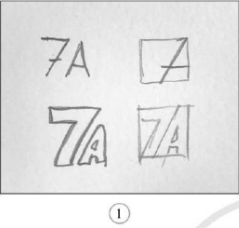 7A 7
7A 7A
1